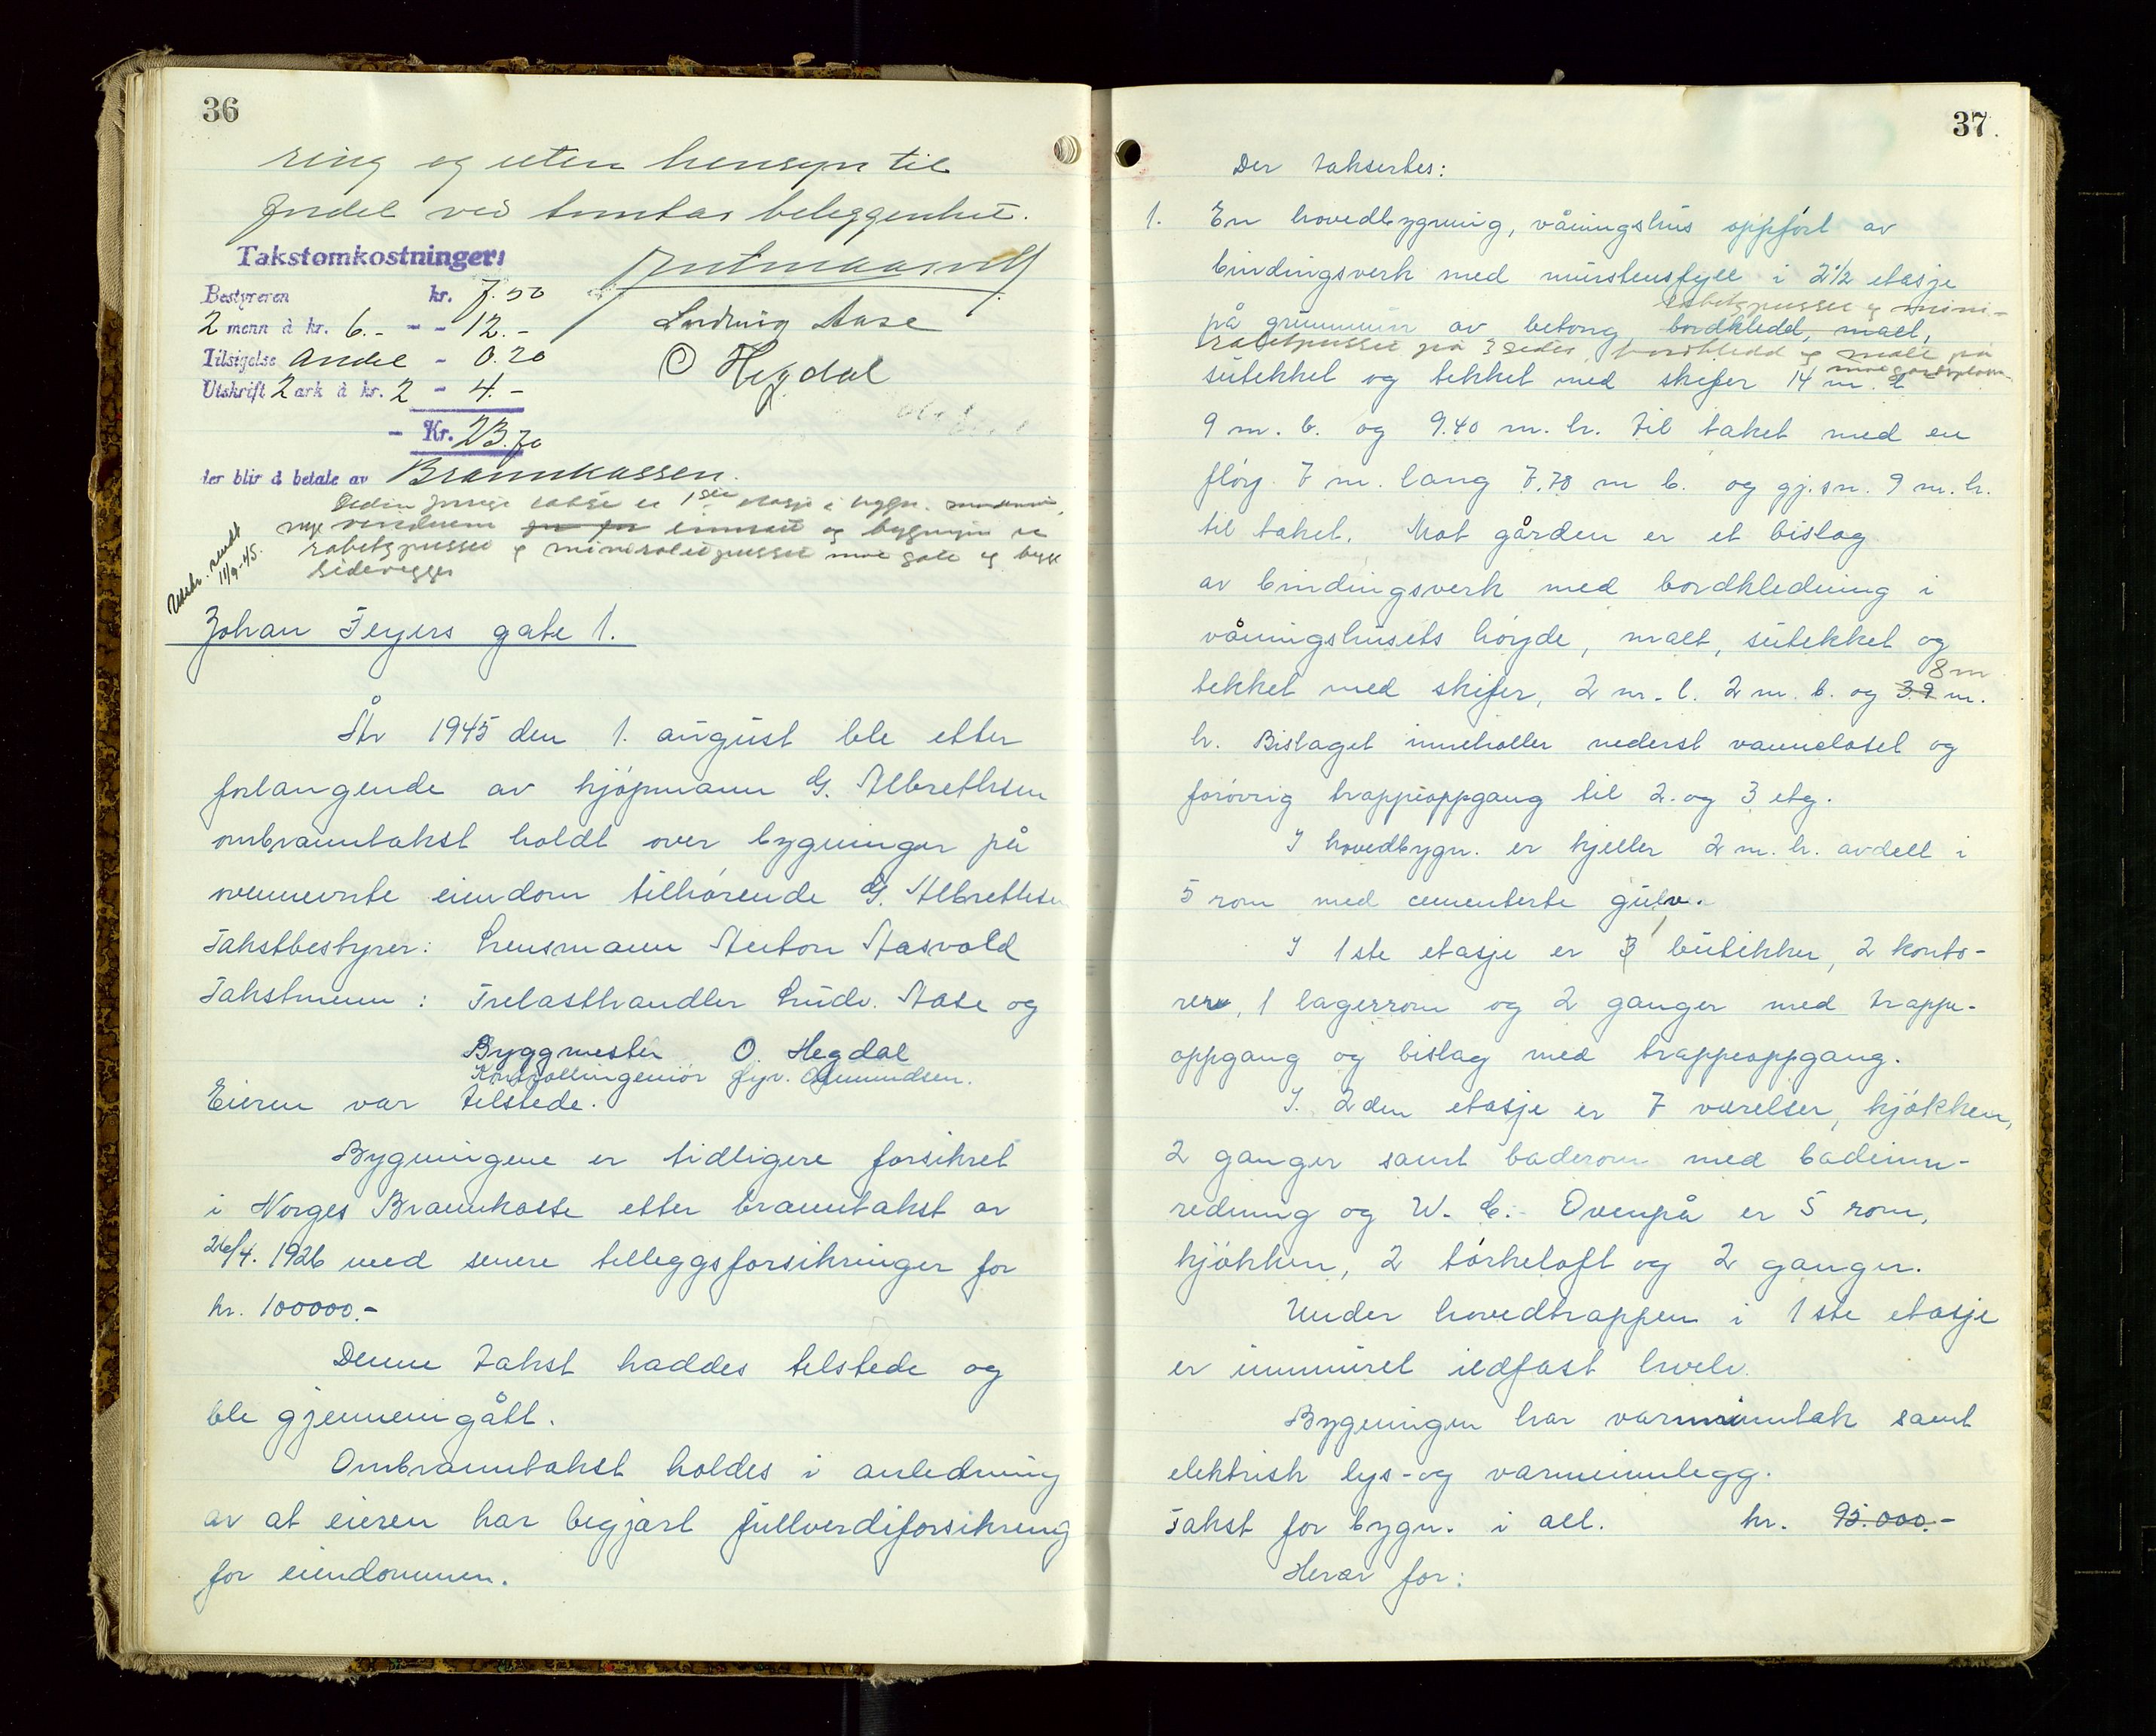 36
ring og uten hensyn til
fordel ved tomtas beleggenhet.
Takstomkostninger:
Bestyreren kr. 7.50
2 menn à kr. 6.- - - 12.-
Ludvig Aase
Tilsigelse andel - 0.20
O Hegdal
Utskrift 2 ark à kr. 2 - 4.-
- Kr. 23.70
der blir å betale av Brannkassen.
Siden forrige takst er 1ste etasje i bygn.
nye vinduene innsatt og bygningen er
rabetspusset og mineralitpusset mot gate og begge
sidevegger
Utskr. sendt
11/9-45.
Johan Feyers gate 1.
År 1945 den 1. august ble etter
forlangende av kjøpmann G. Albrethsen
ombranntakst holdt over bygninger på
ovennevnte eiendom tilhørende G. Albrethsen
Takstbestyrer: Lensmann Anton Aasvold
Takstmenn: Trelasthandler Ludv. Aase og
Byggmester O. Hegdal
Kontrollingeniør Gyv. Osmundsen.
Eieren var tilstede.
Bygningene er tidligere forsikret
i Norges Brannkasse etter branntakst av
26/4. 1926 med senere tilleggsforsikringer for
kr. 100000.-
Denne takst haddes tilstede og
ble gjennemgått.
Ombranntakst holdes i anledning
av at eieren har begjært fullverdiforsikring
for eiendommen.
37.
Der takseres:
1. En hovedbygning, våningshus oppført av
bindingsverk med murstensfyll i 2½ etasje
rabetspusset og mini-
på grunnmur av betong bordkledd, malt,
rabetpusset på 3 sider, bordkledd og malt på
mot gårdsplass
sutekket og tekket med skifer 14 m. l
9 m. b. og 9.40 m. h. til taket med en
fløy 7 m. lang 7,78 m b. og gj.sn. 9 m. h.
til taket. Mot gården er et bislag
av bindingsverk med bordkledning i
våningshusets høyde, malt, sutekket og
8 m
tekket med skifer, 2 m. l. 2 m. b. og 3.9 m.
h. Bislaget inneholler nederst vannclosel og
forøvrig trappeoppgang til 2. og 3 etg.
I hovedbygn. er kjeller 2 m. h. avdelt i
5 rom med cementerte gulv.
I 1ste etasje er 3 butikker, 2 konto-
rer, 1 lagerrom og 2 ganger med trappe-
oppgang og bislag med trappeoppgang.
I. 2den etasje er 7 værelser, kjøkken,
2 ganger samt baderom med badeinn-
redning og W. C. Ovenpå er 5 rom,
kjøkken, 2 tørkeloft og 2 ganger.
Under hovedtrappen i 1ste etasje
er innmuret ildfast hvelv.
Bygningen har vanninntak samt
elektrisk lys- og varmeinnlegg.
Takst for bygn. i alt. kr. 95.000.-
Herav for: